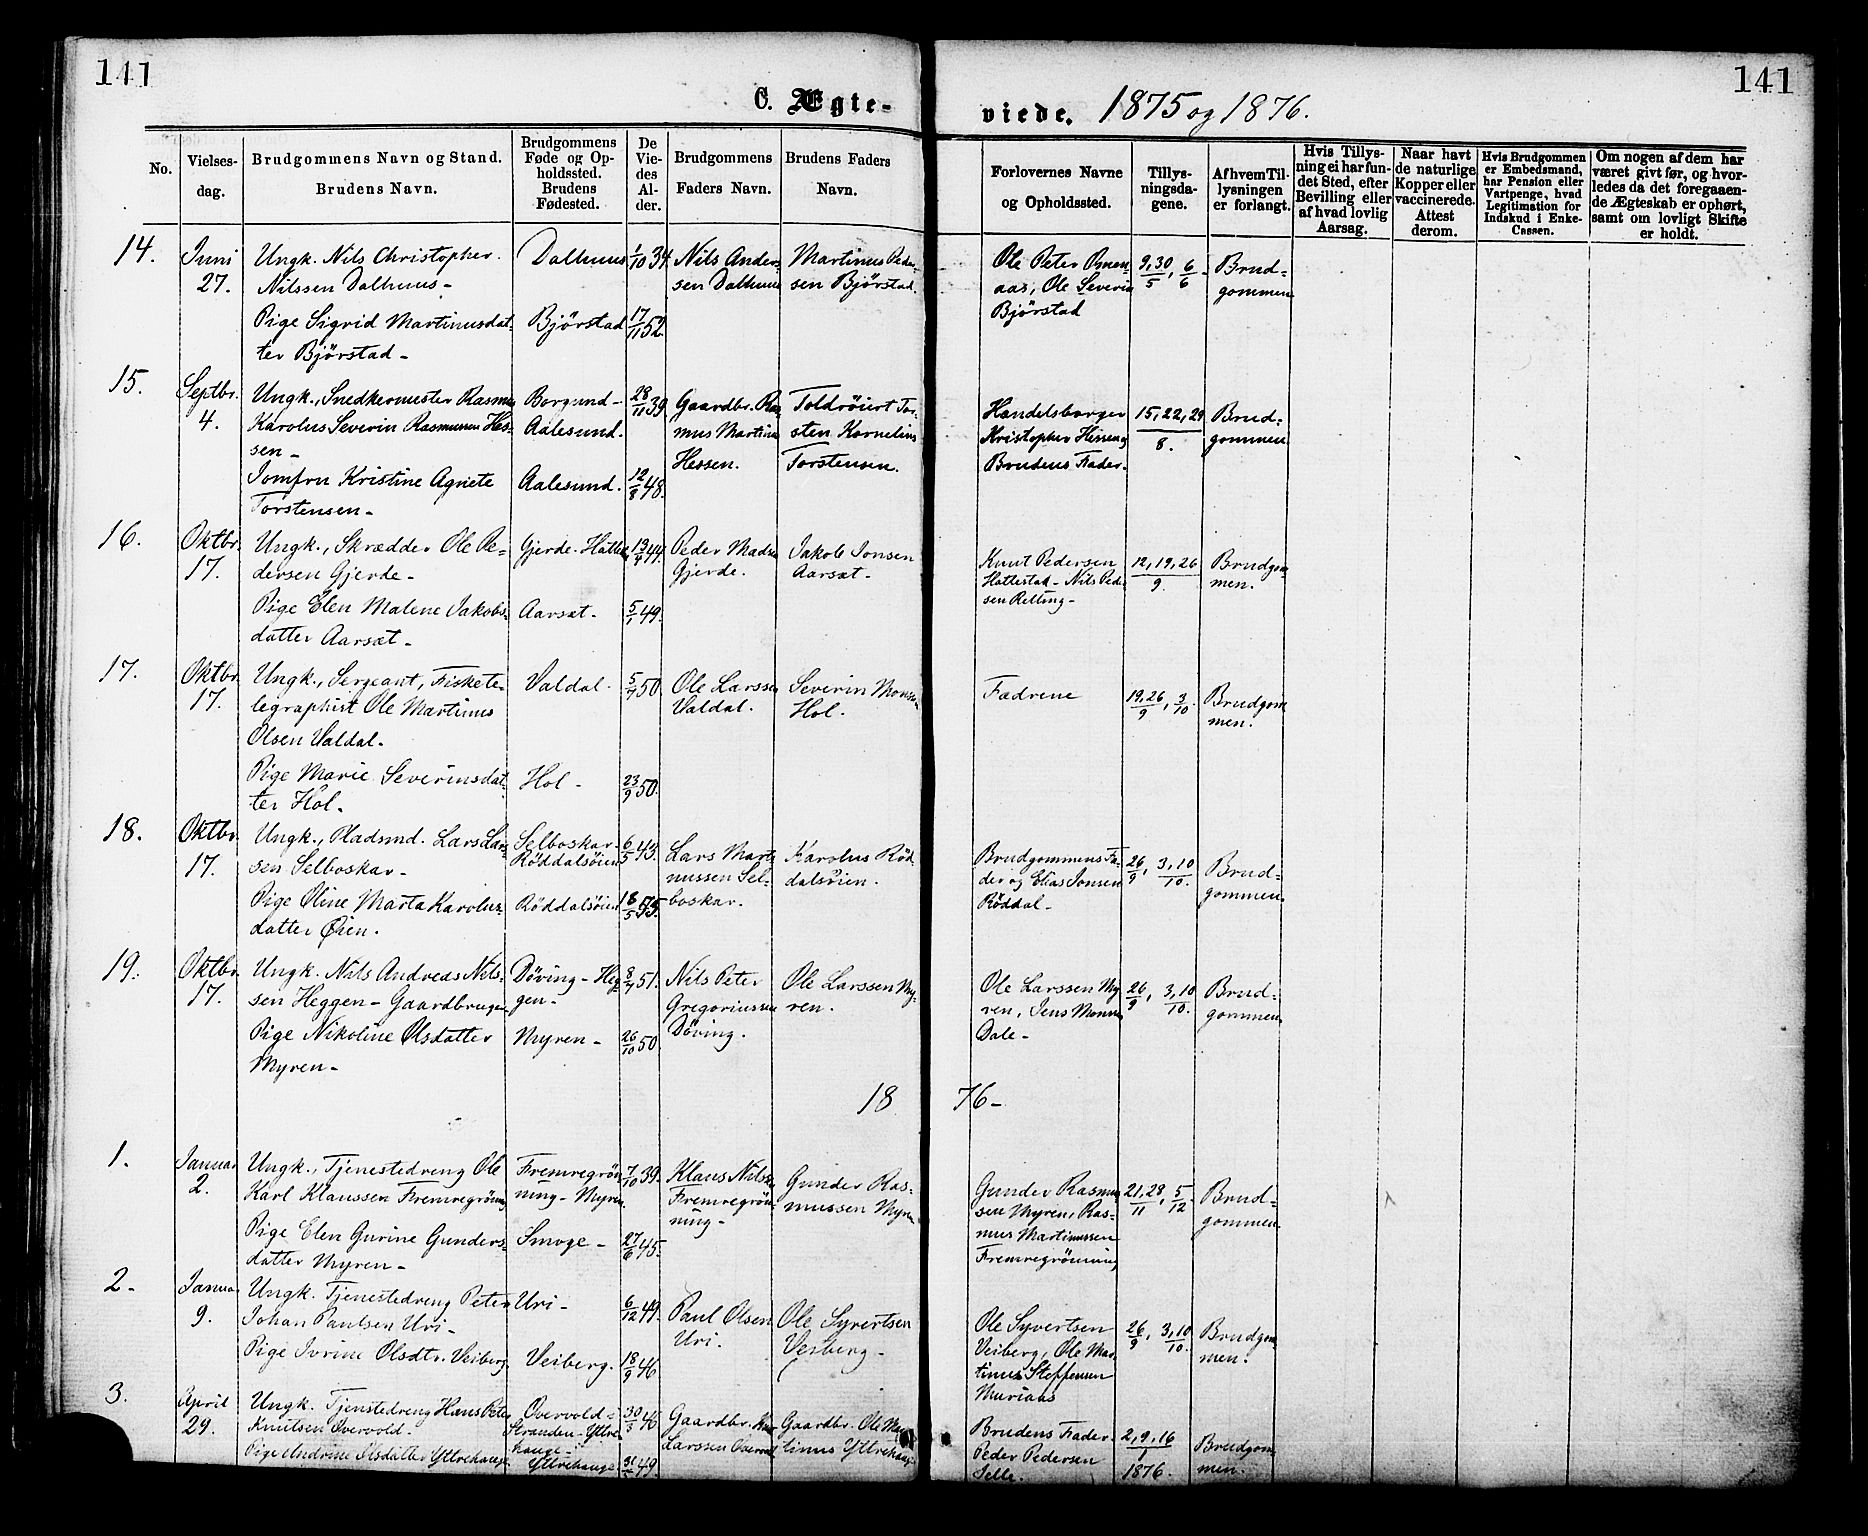 141
141
C. Ægte-
viede. 1875 og 1876.
No.
Vielses-
dag.
Brudgommens Navn og Stand.
Brudens Navn.
Brudgommens
Føde og Op-
holdssted.
Brudens
Fødested.
De
Vie-
des
Al-
der.
Brudgommens
Faders Navn.
Brudens Faders
Navn.
Forlovernes Navne
og Opholdssted.
Tillys-
ningsda-
gene.
Af hvem Til-
lysningen
er forlangt.
Hvis Tillys-
ning ei har fun-
det Sted, efter
Bevilling eller
af hvad lovlig
Aarsag.
Naar havt
de naturlige
Kopper eller
vaccinerede.
Attest
derom.
Hvis Brudgommen
er Embedsmand,
har Pension eller
Vartpenge, hvad
Legitimation for
Indskud i Enke-
Cassen.
Om nogen af dem har
været givt før, og hvor-
ledes da det foregaaen-
de Ægteskab er ophørt,
samt om lovligt Skifte
er holdt.
14.
Juni
27.
Ungk. Nils Christopher
Nilssen Dalhuus -
Pige Sigrid Martinusdat-
ter Bjørstad -
Dalhuus
Bjørstad
1/10 34.
17/11 52.
Nils Ander-
sen Dalhuus
Martinus Peder-
sen Bjørstad.
Ole Peter
aas, Ole Severin
Bjørstad
9, 30/5, 6/6
Brud-
gommen
15.
Septbr.
4.
Ungk., Snedkermester Rasmus
Karolus Severin Rasmussen Hes-
sen -
Jomfru Kristine Agnete
Torstensen -
Borgund -
Aalesund.
Aalesund.
28/11 39.
12/8 48.
Gaardbr. Ras-
mus Martinus
Hessen.
Toldrøiert Tor-
sten Kornelius
Torstensen.
Handelsborger
Kristopher Hessen og
Brudens Fader.
15, 22, 29/8.
Brud-
gommen
16.
Oktbr.
17.
Ungk., Skrædder Ole Pe-
dersen Gjerde -
Pige Elen Malene Jakobs-
datter Aarsæt -
Gjerde.
Aarsæt -
13/4 44.
5/1 49.
Peder Madsen
Gjerde.
Jakob Jonsen
Aarsæt -
Knut Pedersen
Hattestad - Nils Peder-
sen Relling -
12, 19, 26/9.
Brudgom-
men.
17.
Oktbr.
17.
Ungk., Sergeant, Fiskete-
legraphist Ole Martinus
Olsen Valdal -
Pige Marie Severinsdat-
ter Hol -
Valdal -
Hol -
5/7 50.
23/9 50.
Ole Larssen
Valdal.
Severin Monsen
Hol.
Fædrene
19, 26/9, 3/10.
Brudgom-
men.
18.
Oktbr.
17.
Ungk., Pladsmd. Lars Lars-
sen Selboskar -
Pige Oline Marta Karolus-
datter Øien.
Selboskar.
Røddalsøien
Røddalsøien
6/5 43.
18/5 55.
Lars Marti-
nussen Sel-
boskar.
Karolus Rød-
dalsøien.
Brudgommens Fa-
der og Elias Jonsen
Røddal -
26/9, 3, 10/10.
Brud-
gommen
19.
Oktbr.
17.
Ungk. Nils Andreas Nils-
sen Heggen - Gaardbruger
Pige Nikoline Olsdatter
Myren -
Døving - Heg-
gen -
Myren -
8/7 51.
26/10 50.
Nils Peter
Gregoriussen
Døving.
Ole Larssen My-
ren.
Ole Larssen My-
ren, Jens Monsen
Dale -
26/9, 3, 10/10.
Brud-
gommen
18 76 -
1.
Januar
2.
Ungk., Tjenestedreng Ole
Karl Klaussen Fremregrøning
Pige Elen Gurine Gunders-
datter Myren -
Fremregrøn-
ning - Myren
Smoge -
7/10 39.
27/6 45.
Klaus Nilssen
Fremregrøn-
ning -
Gunder Ras-
mussen Myren
Gunder Rasmus-
sen Myren, Ras-
mus Martinussen
Fremregrønning
21, 28/11, 5/12.
Brud-
gommen
2 -
Januar
9.
Ungk. Tjenestedreng Peter
Johan Paulsen Uri -
Pige Ivrine Olsdtr. Veiberg
Uri -
Veiberg.
6/12 49.
18/9 46
Paul Olsen
Uri.
Ole Syvertsen
Veiberg -
Ole Syvertsen
Veiberg, Ole Mar-
tinus Steffensen
Muriaas
26/9, 3, 10/10.
Brudgom-
men.
3.
April
29.
Ungk. Tjenestedreng Hans Peter
Knutsen Overvold -
Pige Andrine Olsdatter Yttrehauge
Overvold -
Stranden - Yttre-
hauge -
Yttrehauge
30/3 46
49.
Gaardbr. Knut
Larssen Overvold
Gaardbr. Ole Mar-
tinus Yttrehauge
Brudens Fader -
Peder Pedersen
Selle.
2, 9, 16/1
1876.
Brudgom-
men.